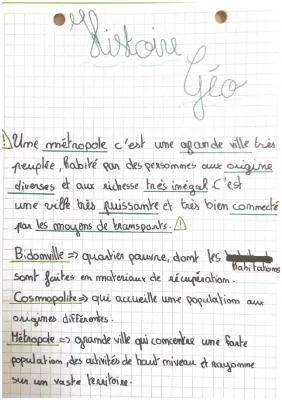 Histoire
Géo
⚠ Une métropole c'est une grande ville très
peuplée, habité par des personnes aux origine
diverses et aux richesse très inégal. C'est
une ville très puissante et très bien connecté
par les moyens de transports. ⚠
Bidonville => quartier pauvre, dont les habitations
sont faites en materiaux de récupération.
Cosmopolite => qui accueille une population aux
origines différentes.
Métropole => grande ville qui concentre une forte
population, des activités de haut niveau et rayonne
sur un vaste territoire.